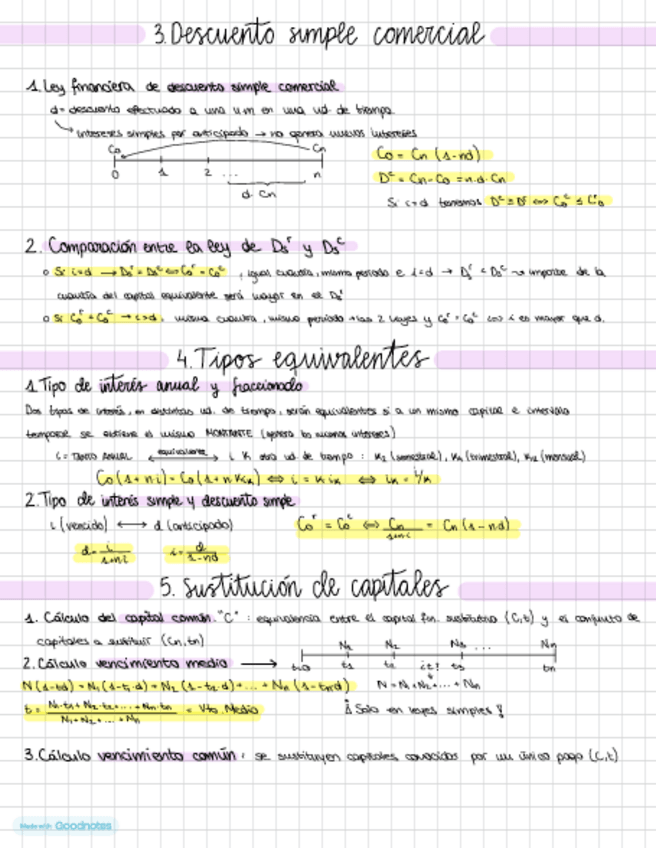 3. Descuento simple comercial
1. Ley financiera de descuento simple comercial
d = descuento efectuado a una u.m en una ud. de tiempo.
intereses simples por anticipado → no genera nuevos intereses
Co Cn
0 1 2 ... n
d · Cn
Co = Cn (1-nd)
Dᶜ = Cn - Co = n·d·Cn
Si i=d tenemos
2. Comparación entre la ley de Dsʳ y Dsᶜ
o Si i=d → Dsʳ = Dsᶜ ⟺ Coʳ = Coᶜ , igual cuantía, mismo periodo e i=d → Dsʳ < Dsᶜ ↝ importe de la
cuantía del capital equivalente será mayor en el Dsʳ
o Si Coʳ = Coᶜ → i>d. misma cuantía, mismo periodo + las 2 leyes y Coʳ = Coᶜ ⟺ i es mayor que d.
4. Tipos equivalentes
1. Tipo de interés anual y fraccionado
Dos tipos de interés, en distintas ud. de tiempo, serán equivalentes si a un mismo capital e intervalo
temporal se obtiene el mismo MONTANTE (genera los mismos intereses)
i = TANTO ANUAL ⟷ equivalente i k otra ud de tiempo : K2 (semestral), K4 (trimestral), K12 (mensual)
Co (1+n·i) = Co (1+n·K·iK) ⟺ i = K·iK ⟺ iK = i/K
2. Tipo de interés simple y descuento simple
i (vencido) ⟷ d (anticipado) Coʳ = Coᶜ ⟺ Cn/1+n·i = Cn (1-n·d)
d = i/1+n·i i = d/1-n·d
5. Sustitución de capitales
1. Cálculo del capital común. "C" : equivalencia entre el capital fin. sustitutivo (C,t) y el conjunto de
capitales a sustituir (Cn,tn)
2. Cálculo vencimiento medio ⟶
N1 N2 N3 ... Nn
t=0 t1 t2 ¿t? t3 tn
N (1-t·d) = N1 (1-t1·d) + N2 (1-t2·d) + ... + Nn (1-tn·d) N = N1 + N2 + ... + Nn
t = N1·t1 + N2·t2 + ... + Nn·tn / N1 + N2 + ... + Nn = Vto. Medio ¡ Solo en leyes simples !
3. Cálculo vencimiento común : se sustituyen capitales conocidos por un único pago (C,t)
Made with Goodnotes